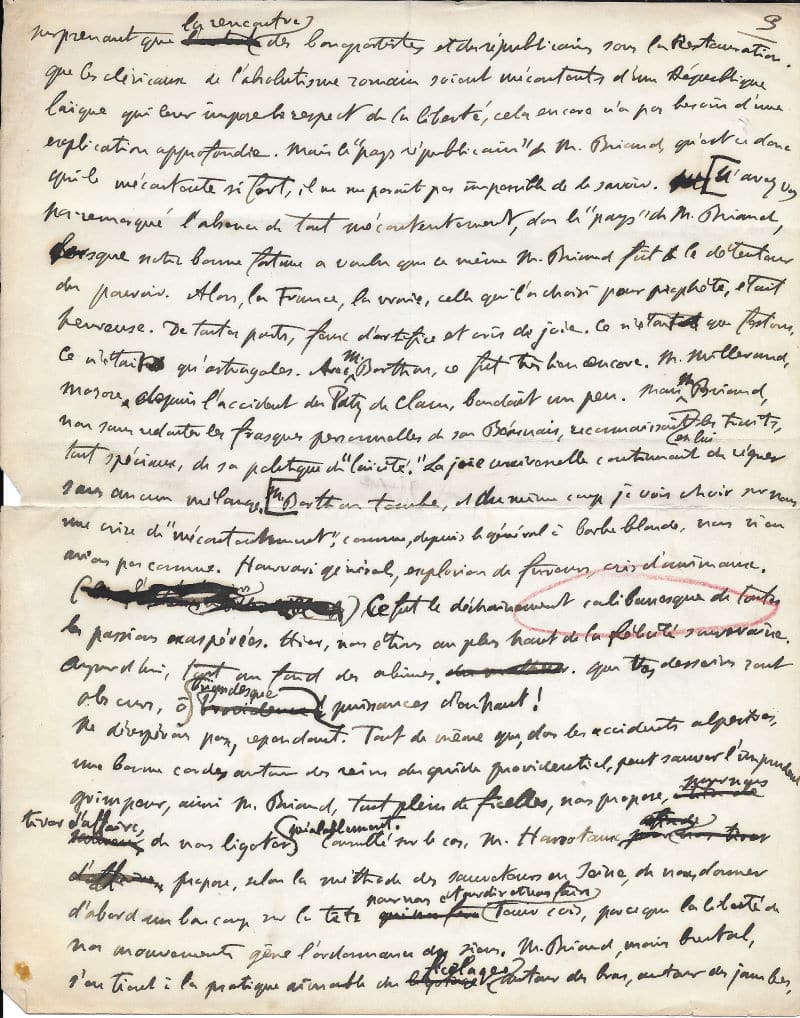 3
surprenant que la rencontre des bonapartistes et des républicains sous la Restauration.
que les cléricaux de l'absolutisme romain soient mécontents d'une République
laïque qui leur impose le respect de la liberté, cela encore n'a pas besoin d'une
explication approfondie. Mais le "pays républicain" de M. Briand, qu'est-ce donc
qui le mécontente si fort, il ne me paraît pas impossible de le savoir. [N'avez vous
pas remarqué l'absence de tout mécontentement, dans le "pays" de M. Briand,
lorsque notre bonne fortune a voulu que ce même M. Briand fût le détenteur
du pouvoir. Alors, la France, la vraie, celle qui l'a choisi pour prophète, était
heureuse. De toutes parts, feux d'artifice et cris de joie. Ce n'était que festons,
ce n'était qu'astragales. Avec M. Barthou, ce fut très bien encore. M. Millerand,
morose, depuis l'accident du Paty de Clam, boudait un peu. Mais M. Briand,
non sans redouter les frasques personnelles de son Béarnais, reconnaissait en lui les traits,
tout spéciaux, de sa politique de "laïcité." La joie universelle continuait de régner
sans aucun mélange. [M. Barthou tombe, et du même coup je vois choir sur nous
une crise de "mécontentement", comme, depuis le général à barbe blonde, nous n'en
avions pas connue. Hourvari général, explosion de fureurs, cris d'animaux.
Ce fut le déchaînement calibanesque de toutes
les passions exaspérées. Hier, nous étions au plus haut de la félicité souveraine.
Aujourd'hui, tout au fond des abîmes. que vos desseins sont
obscurs, ô briandesque puissances d'en haut!
Ne désespérons pas, cependant. Tout de même que, dans les accidents alpestres,
une bonne corde autour des reins du guide providentiel, peut sauver l'imprudent
grimpeur, ainsi M. Briand, tout plein de ficelles, nous propose, pour nous
tirer d'affaire, de nous ligoter préalablement. Consulté sur le cas, M. Hanotaux,
propose, selon la méthode des sauveteurs en Seine, de nous donner
d'abord un bon coup sur la tête pour nous étourdir et nous faire tenir cois, parce que la liberté de
nos mouvements gêne l'ordonnance des siens. M. Briand, moins brutal,
s'en tient à la pratique aimable du ficelage autour des bras, autour des jambes,